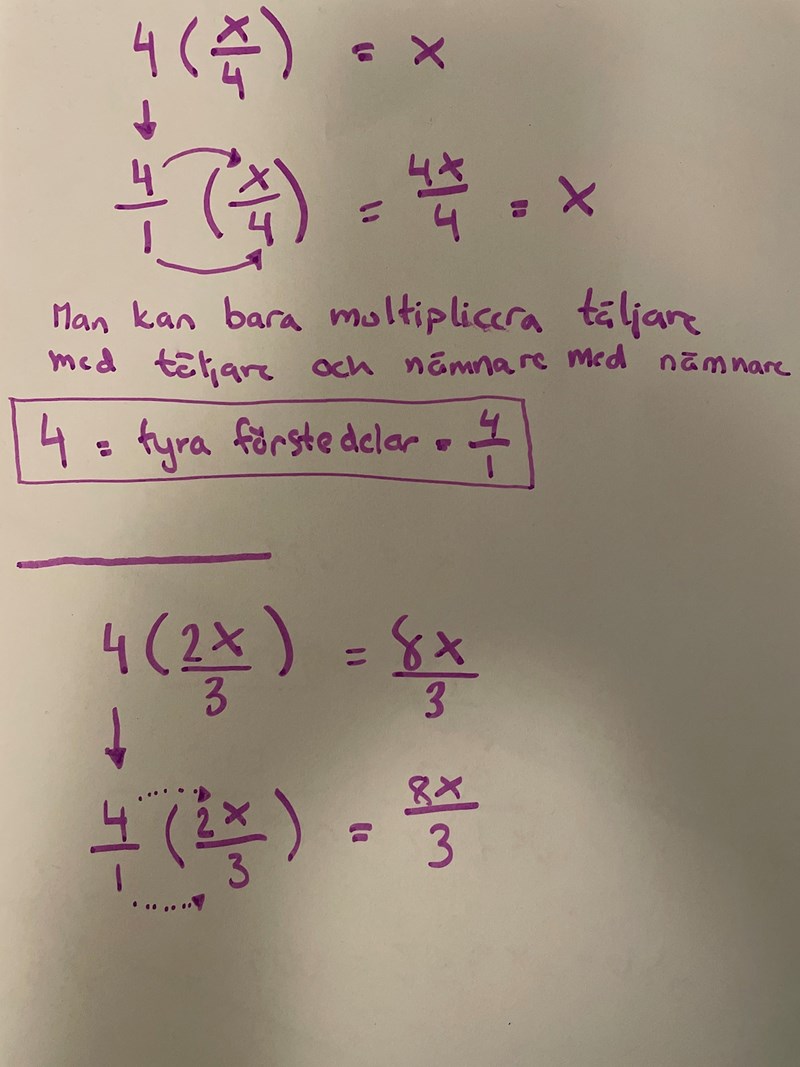 4 ( x/4 ) = x
4/1 ( x/4 ) = 4x/4 = x
Man kan bara multiplicera täljare
med täljare och nämnare med nämnare
4 = fyra förstedelar = 4/1
4 ( 2x/3 ) = 8x/3
4/1 ( 2x/3 ) = 8x/3